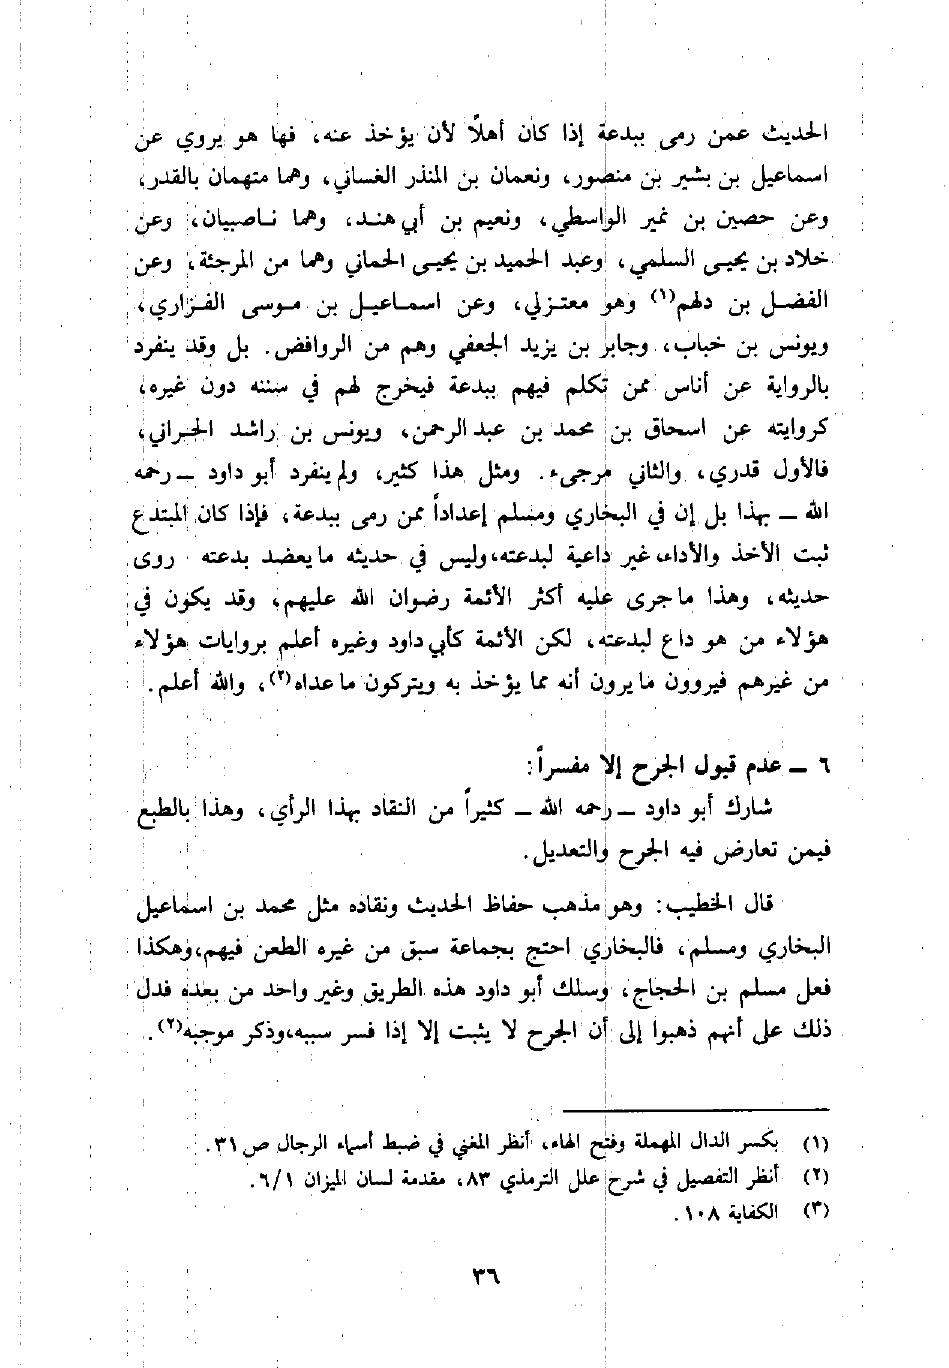 الحديث عمن رمى ببدعة إذا كان أهلاً لأن يؤخذ عنه، فها هو يروي عن
اسماعيل بن بشير بن منصور، ونعمان بن المنذر الغساني، وهما متهمان بالقدر،
وعن حصين بن نمير الواسطي، ونعيم بن أبي هند، وهما ناصبيان، وعن
خلاد بن يحيى السلمي، وعبد الحميد بن يحيى الحماني وهما من المرجئة، وعن
الفضل بن دلهم(١) وهو معتزلي، وعن اسماعيل بن موسى الفزاري،
ويونس بن خباب، وجابر بن يزيد الجعفي وهم من الروافض. بل وقد ينفرد
بالرواية عن أناس ممن تكلم فيهم ببدعة فيخرج لهم في سننه دون غيره،
كروايته عن اسحاق بن محمد بن عبد الرحمن، ويونس بن راشد الحراني،
فالأول قدري، والثاني مرجىء. ومثل هذا كثير، ولم ينفرد أبو داود ــ رحمه
الله ــ بهذا بل إن في البخاري ومسلم إعداداً ممن رمى ببدعة، فإذا كان المبتدع
ثبت الأخذ والأداء، غير داعية لبدعته، وليس في حديثه ما يعضد بدعته روى
حديثه، وهذا ما جرى عليه أكثر الأئمة رضوان الله عليهم، وقد يكون في
هؤلاء من هو داع لبدعته، لكن الأئمة كأبي داود وغيره أعلم بروايات هؤلاء
من غيرهم فيروون ما يرون أنه مما يؤخذ به ويتركون ما عداه(٢)، والله أعلم.
٦ ــ عدم قبول الجرح إلا مفسراً:
شارك أبو داود ــ رحمه الله ــ كثيراً من النقاد بهذا الرأي، وهذا بالطبع
فيمن تعارض فيه الجرح والتعديل.
قال الخطيب: وهو مذهب حفاظ الحديث ونقاده مثل محمد بن اسماعيل
البخاري ومسلم، فالبخاري احتج بجماعة سبق من غيره الطعن فيهم، وهكذا
فعل مسلم بن الحجاج، وسلك أبو داود هذه الطريق وغير واحد من بعده فدل
ذلك على أنهم ذهبوا إلى أن الجرح لا يثبت إلا إذا فسر سببه، وذكر موجبه(٢).
(١) بكسر الدال المهملة وفتح الهاء، أنظر المغني في ضبط أسماء الرجال ص ٣١.
(٢) أنظر التفصيل في شرح علل الترمذي ٨٣، مقدمة لسان الميزان ٦/١.
(٣) الكفاية ١٠٨.
٣٦